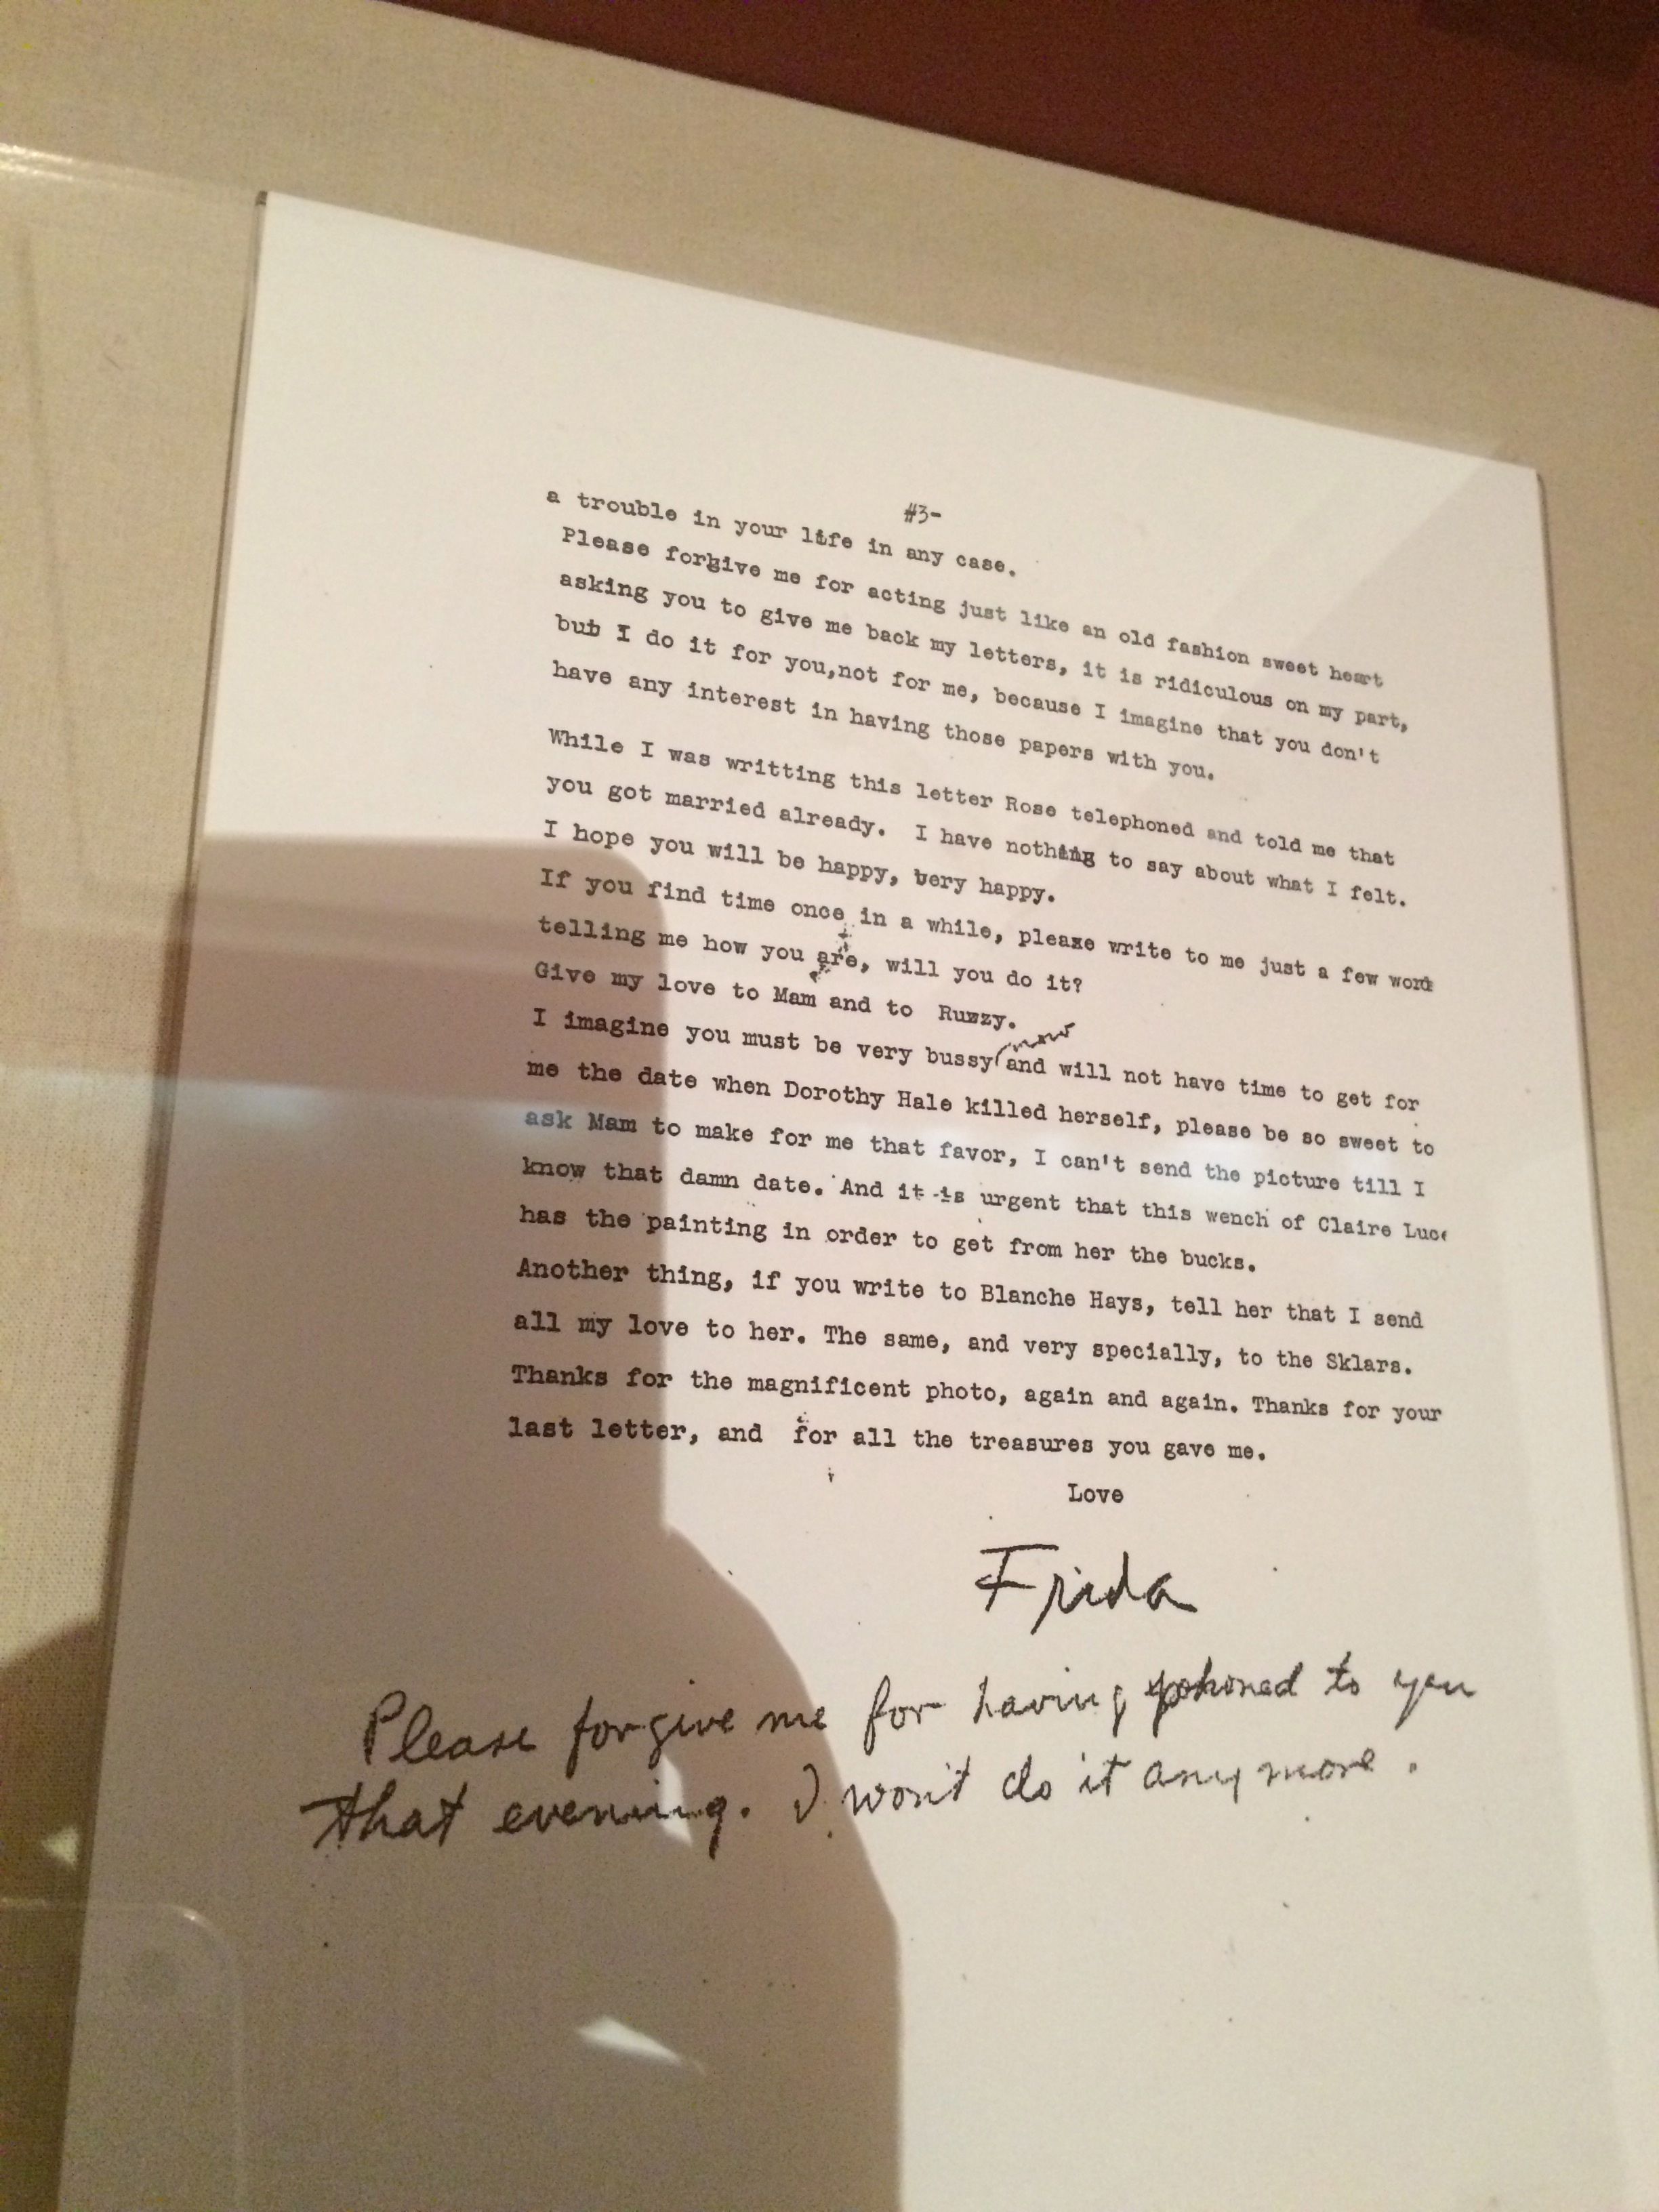 #3-
a trouble in your life in any case.
Please forgive me for acting just like an old fashion sweet heart
asking you to give me back my letters, it is ridiculous on my part,
but I do it for you,not for me, because I imagine that you don't
have any interest in having those papers with you.
While I was writting this letter Rose telephoned and told me that
you got married already. I have nothing to say about what I felt.
I hope you will be happy, very happy.
If you find time once in a while, please write to me just a few word
telling me how you are, will you do it?
Give my love to Mam and to Ruzzy.
I imagine you must be very bussy now and will not have time to get for
me the date when Dorothy Hale killed herself, please be so sweet to
ask Mam to make for me that favor, I can't send the picture till I
know that damn date. And it is urgent that this wench of Claire Luce
has the painting in order to get from her the bucks.
Another thing, if you write to Blanche Hays, tell her that I send
all my love to her. The same, and very specially, to the Sklars.
Thanks for the magnificent photo, again and again. Thanks for your
last letter, and for all the treasures you gave me.
Love
Frida
Please forgive me for having phoned to you
that evening. I won't do it any more.